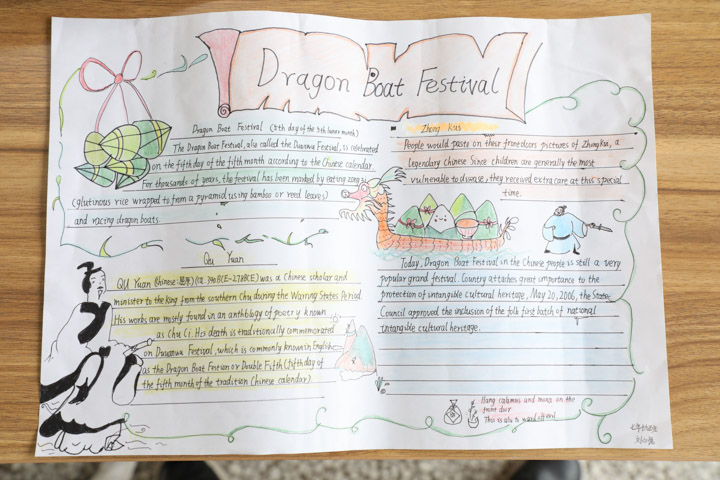 Dragon Boat Festival
Dragon Boat Festival (5th day of the 5th lunar month)
The Dragon Boat Festival, also called the Duanwu Festival, is celebrated
on the fifth day of the fifth month according to the Chinese calendar.
For thousands of years, the festival has been marked by eating zong zi
(glutinous rice wrapped to from a pyramid using bamboo or reed leaves)
and racing dragon boats.
Qu Yuan
QU Yuan (Chinese: 屈原) (340BCE-278BCE) was a Chinese scholar and
minister to the king from the southern Chu during the Warring States Period
His works are mostly found in an anthology of poetry known
as Chu Ci. His death is traditionally commemorated
on Duanwu Festival, which is commonly known in English
as the Dragon Boat Festival or Double Fifth (fifth day of
the fifth month of the tradition Chinese calendar).
Zhong Kui
People would paste on their frontdoors pictures of Zhong Kui, a
legendary chinese Since children are generally the most
vulnerable to disease, they received extra care at this special
time.
Today, Dragon Boat Festival in the Chinese people is still a very
popular grand festival. Country attaches great importance to the
protection of intangible cultural heritage, May 20, 2006, the State
Council approved the inclusion of the folk first batch of national
intangible cultural heritage.
Hang calamus and moxa on the
front door
This is also to ward off evil